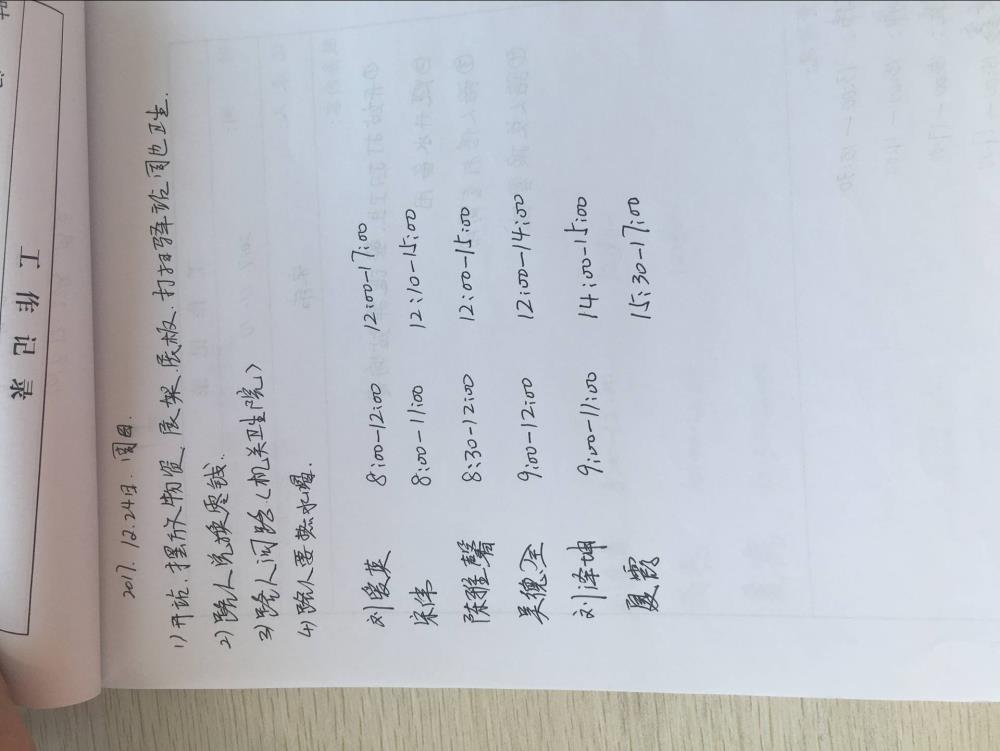 工作记录
2017.12.24日.周日.
1)开站.摆放物资、展架、展板.打扫驿站周边卫生.
2)路人兑换零钱.
3)路人问路.(机关卫生院)
4)路人要热水喝.
刘爱英 8:00-12:00 12:00-17:00
宋伟 8:00-11:00 12:10-15:00
陈雅馨 8:30-12:00 12:00-15:00
吴德全 9:00-12:00 12:00-14:00
刘泽坤 9:00-11:00 14:00-15:00
夏霞 15:30-17:00